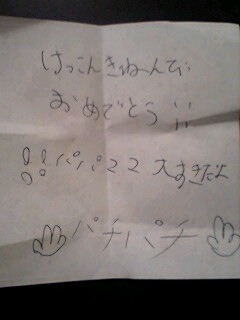 けっこんきねーんでい
おめでとう!!
!!パパ22大すきだよ
パチパチ